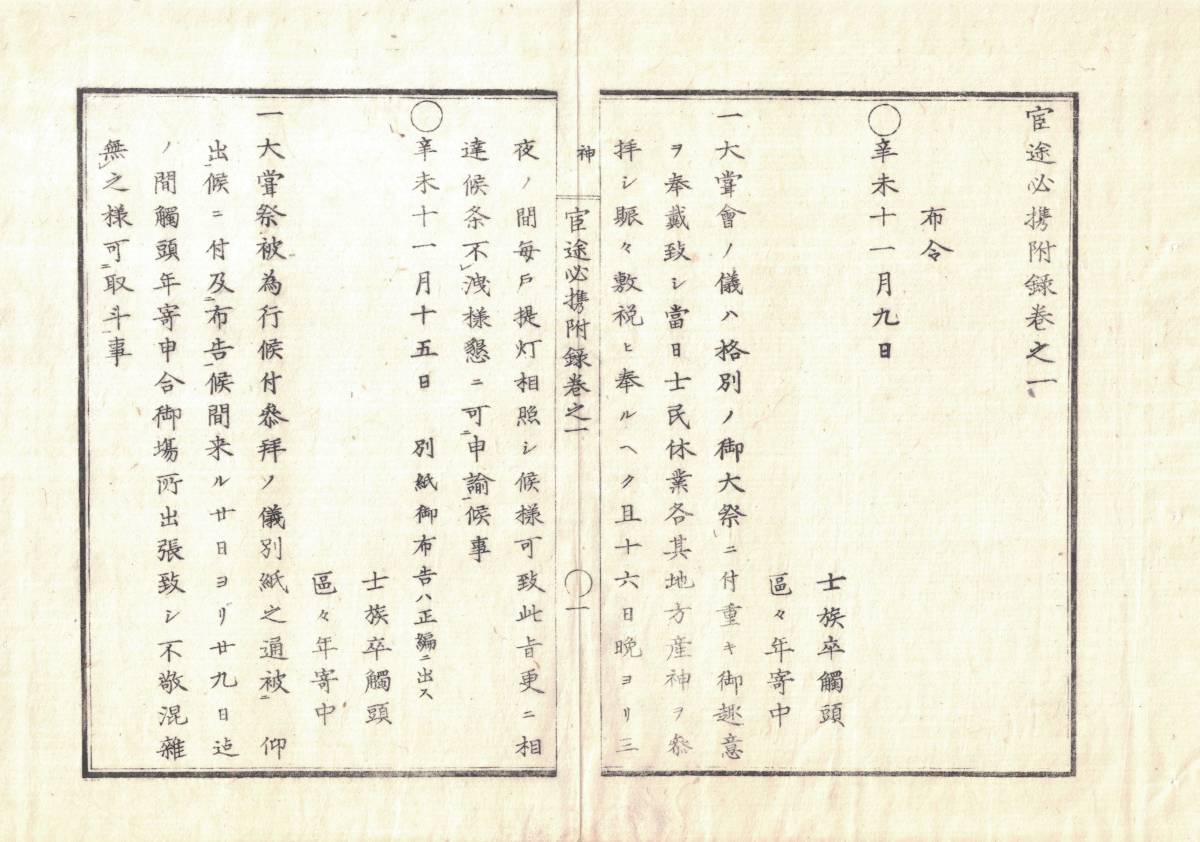 宦途必携附録巻之一
布令
○辛未十一月九日
士族卒觸頭
區々年寄中
一大嘗會ノ儀ハ格別ノ御大祭ニ付重キ御趣意
ヲ奉戴致シ當日士民休業各其地方産神ヲ叅
拝シ賑々敷祝ヒ奉ルヘク且十六日晩ヨリ三
神
宦途必携附録巻之一
○一
夜ノ間毎戸提灯相照シ候様可致此旨更ニ相
達候条不レ洩様懇ニ可二申諭一候事
○辛未十一月十五日 別紙御布告ハ正編ニ出ス
士族卒觸頭
區々年寄中
一大嘗祭被為行候付叅拜ノ儀別紙之通被二 仰
出一候ニ付及二布告一候間来ル廿日ヨリ廿九日迠
ノ間觸頭年寄申合御塲所出張致シ不敬混雜
無レ之様可二取斗一事